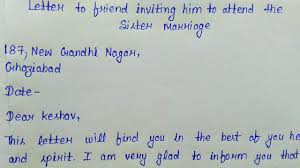 Letter to friend inviting him to attend the
Sister marriage
187, New Gandhi Nagar,
Ghaziabad
Date-
Dear keshav,
This letter will find you in the best of you he
and spirit. I am very glad to inform you that